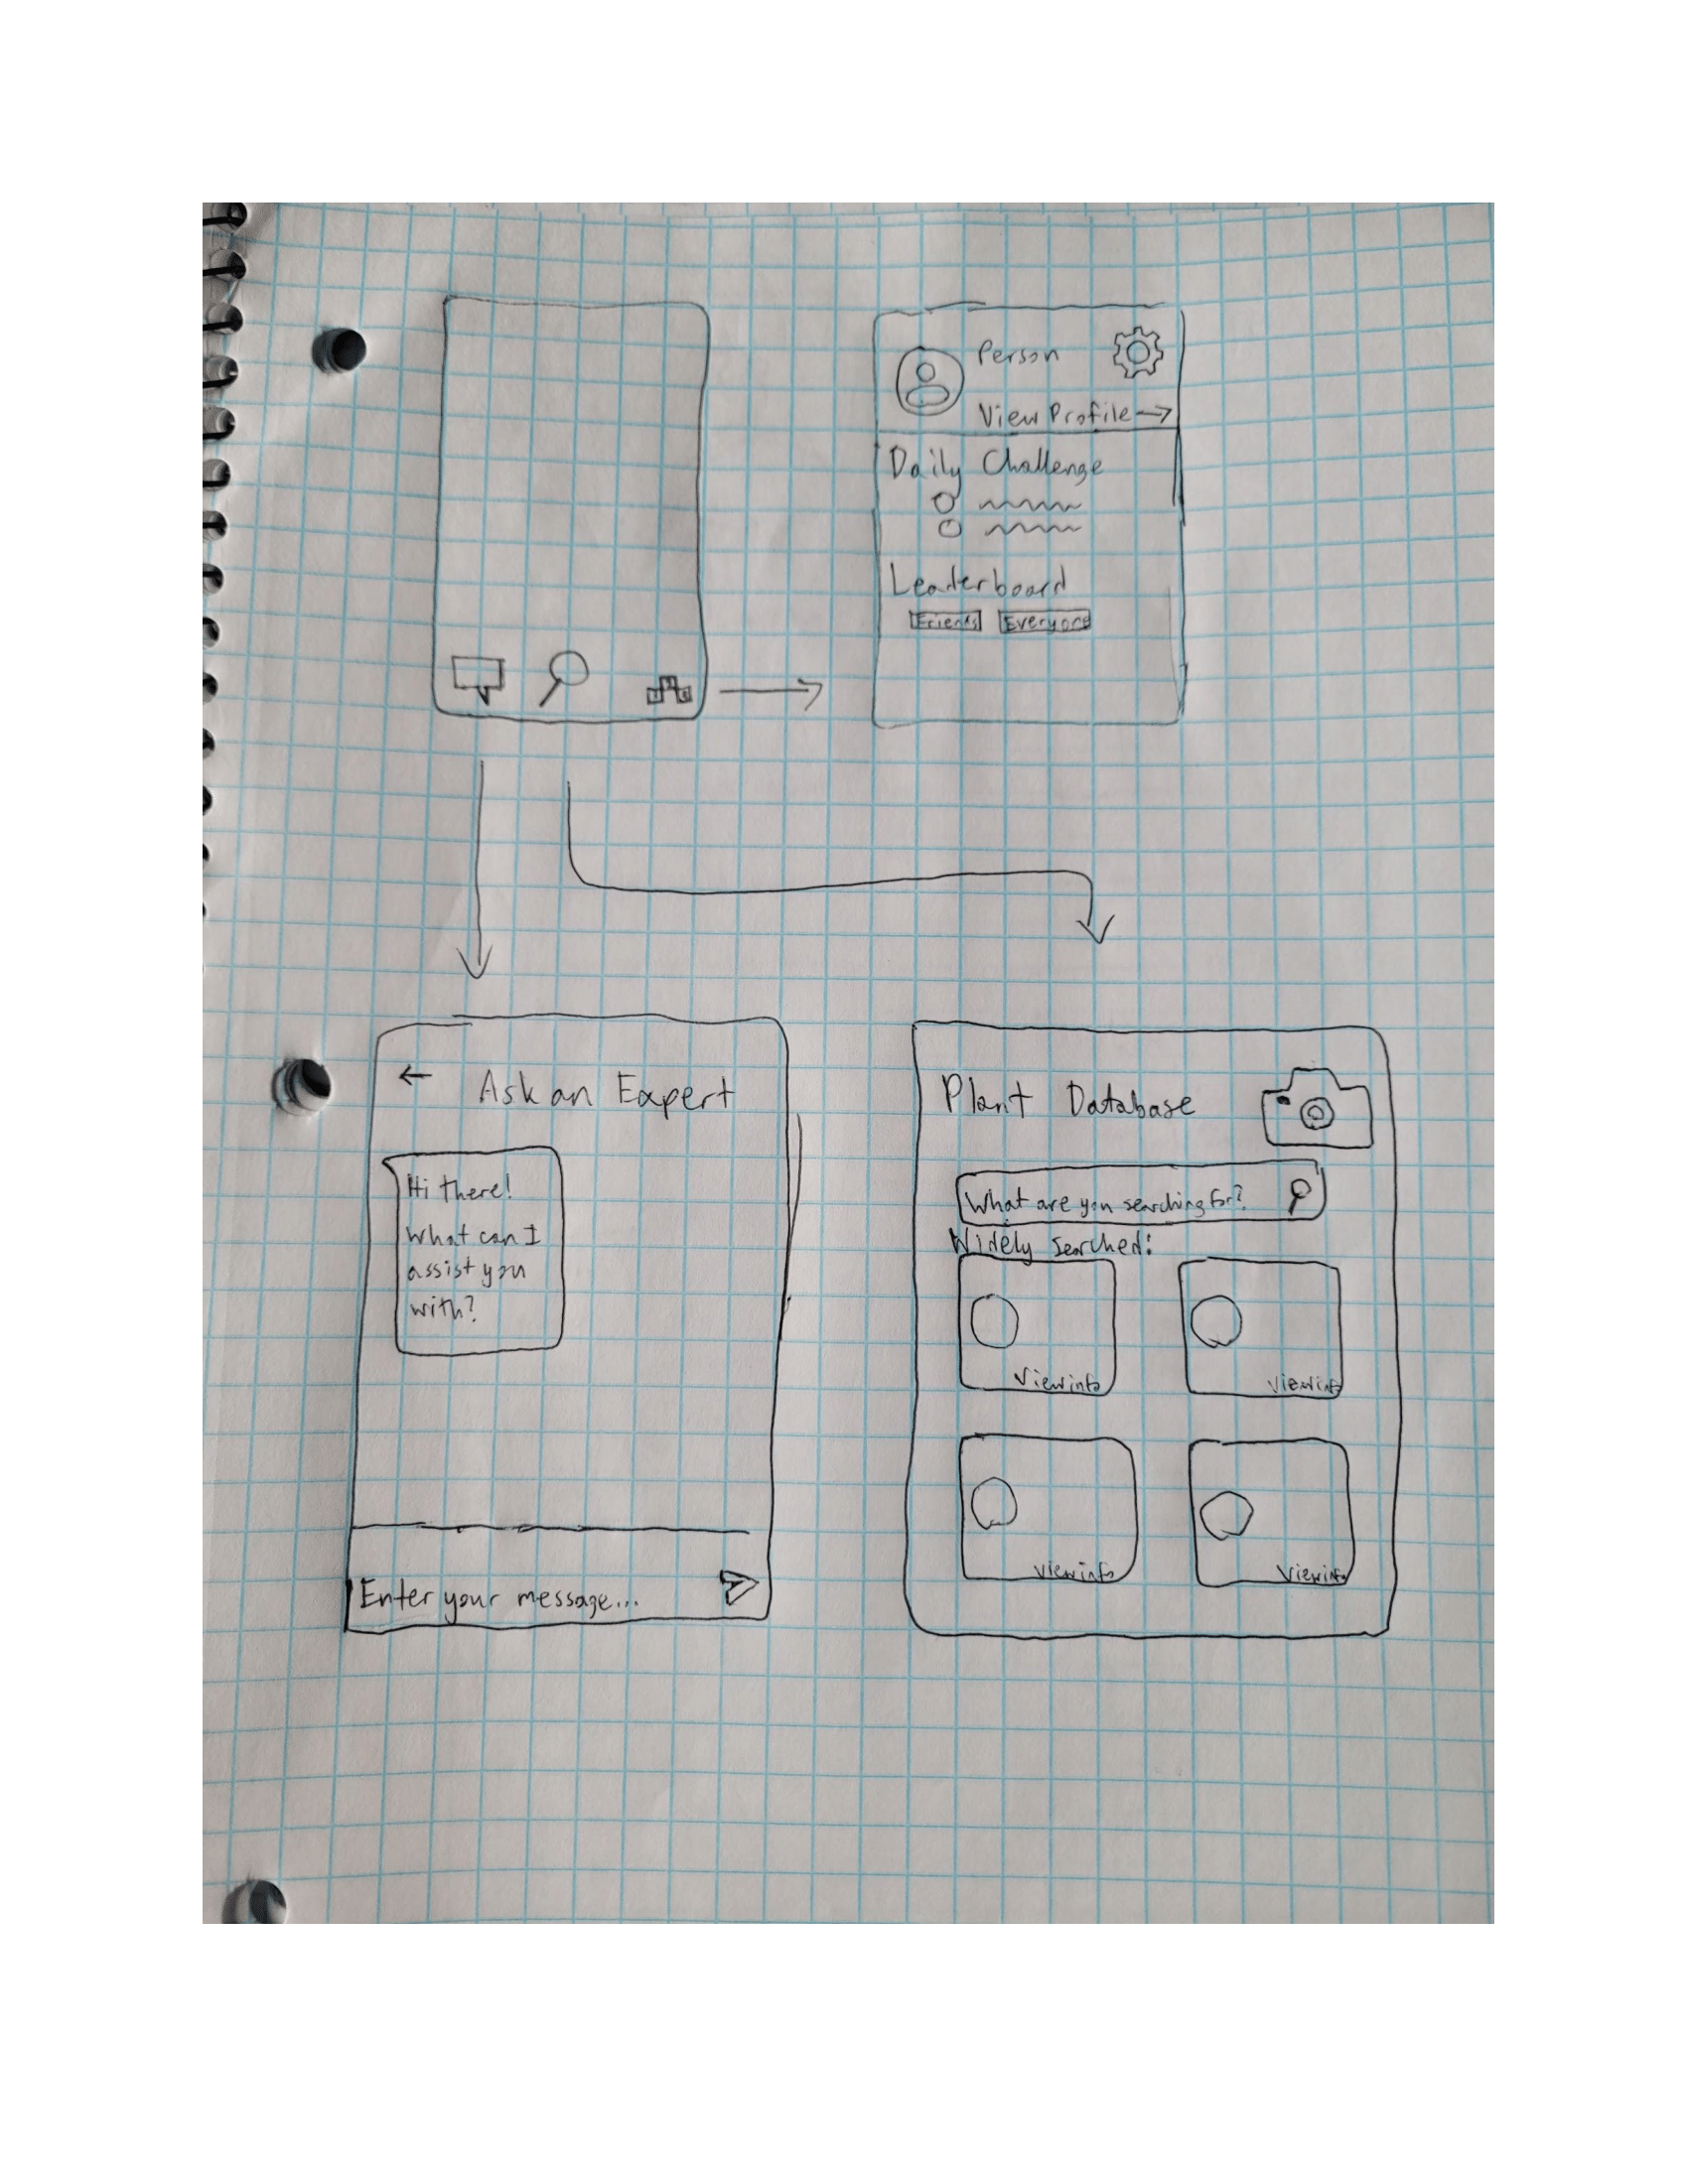 Person
View Profile
Daily Challenge
Leaderboard
Friends Everyone
Ask an Expert
Hi there!
What can I
assist you
with?
Enter your message...
Plant Database
What are you searching for?
Widely searched:
View info View info
View info View info